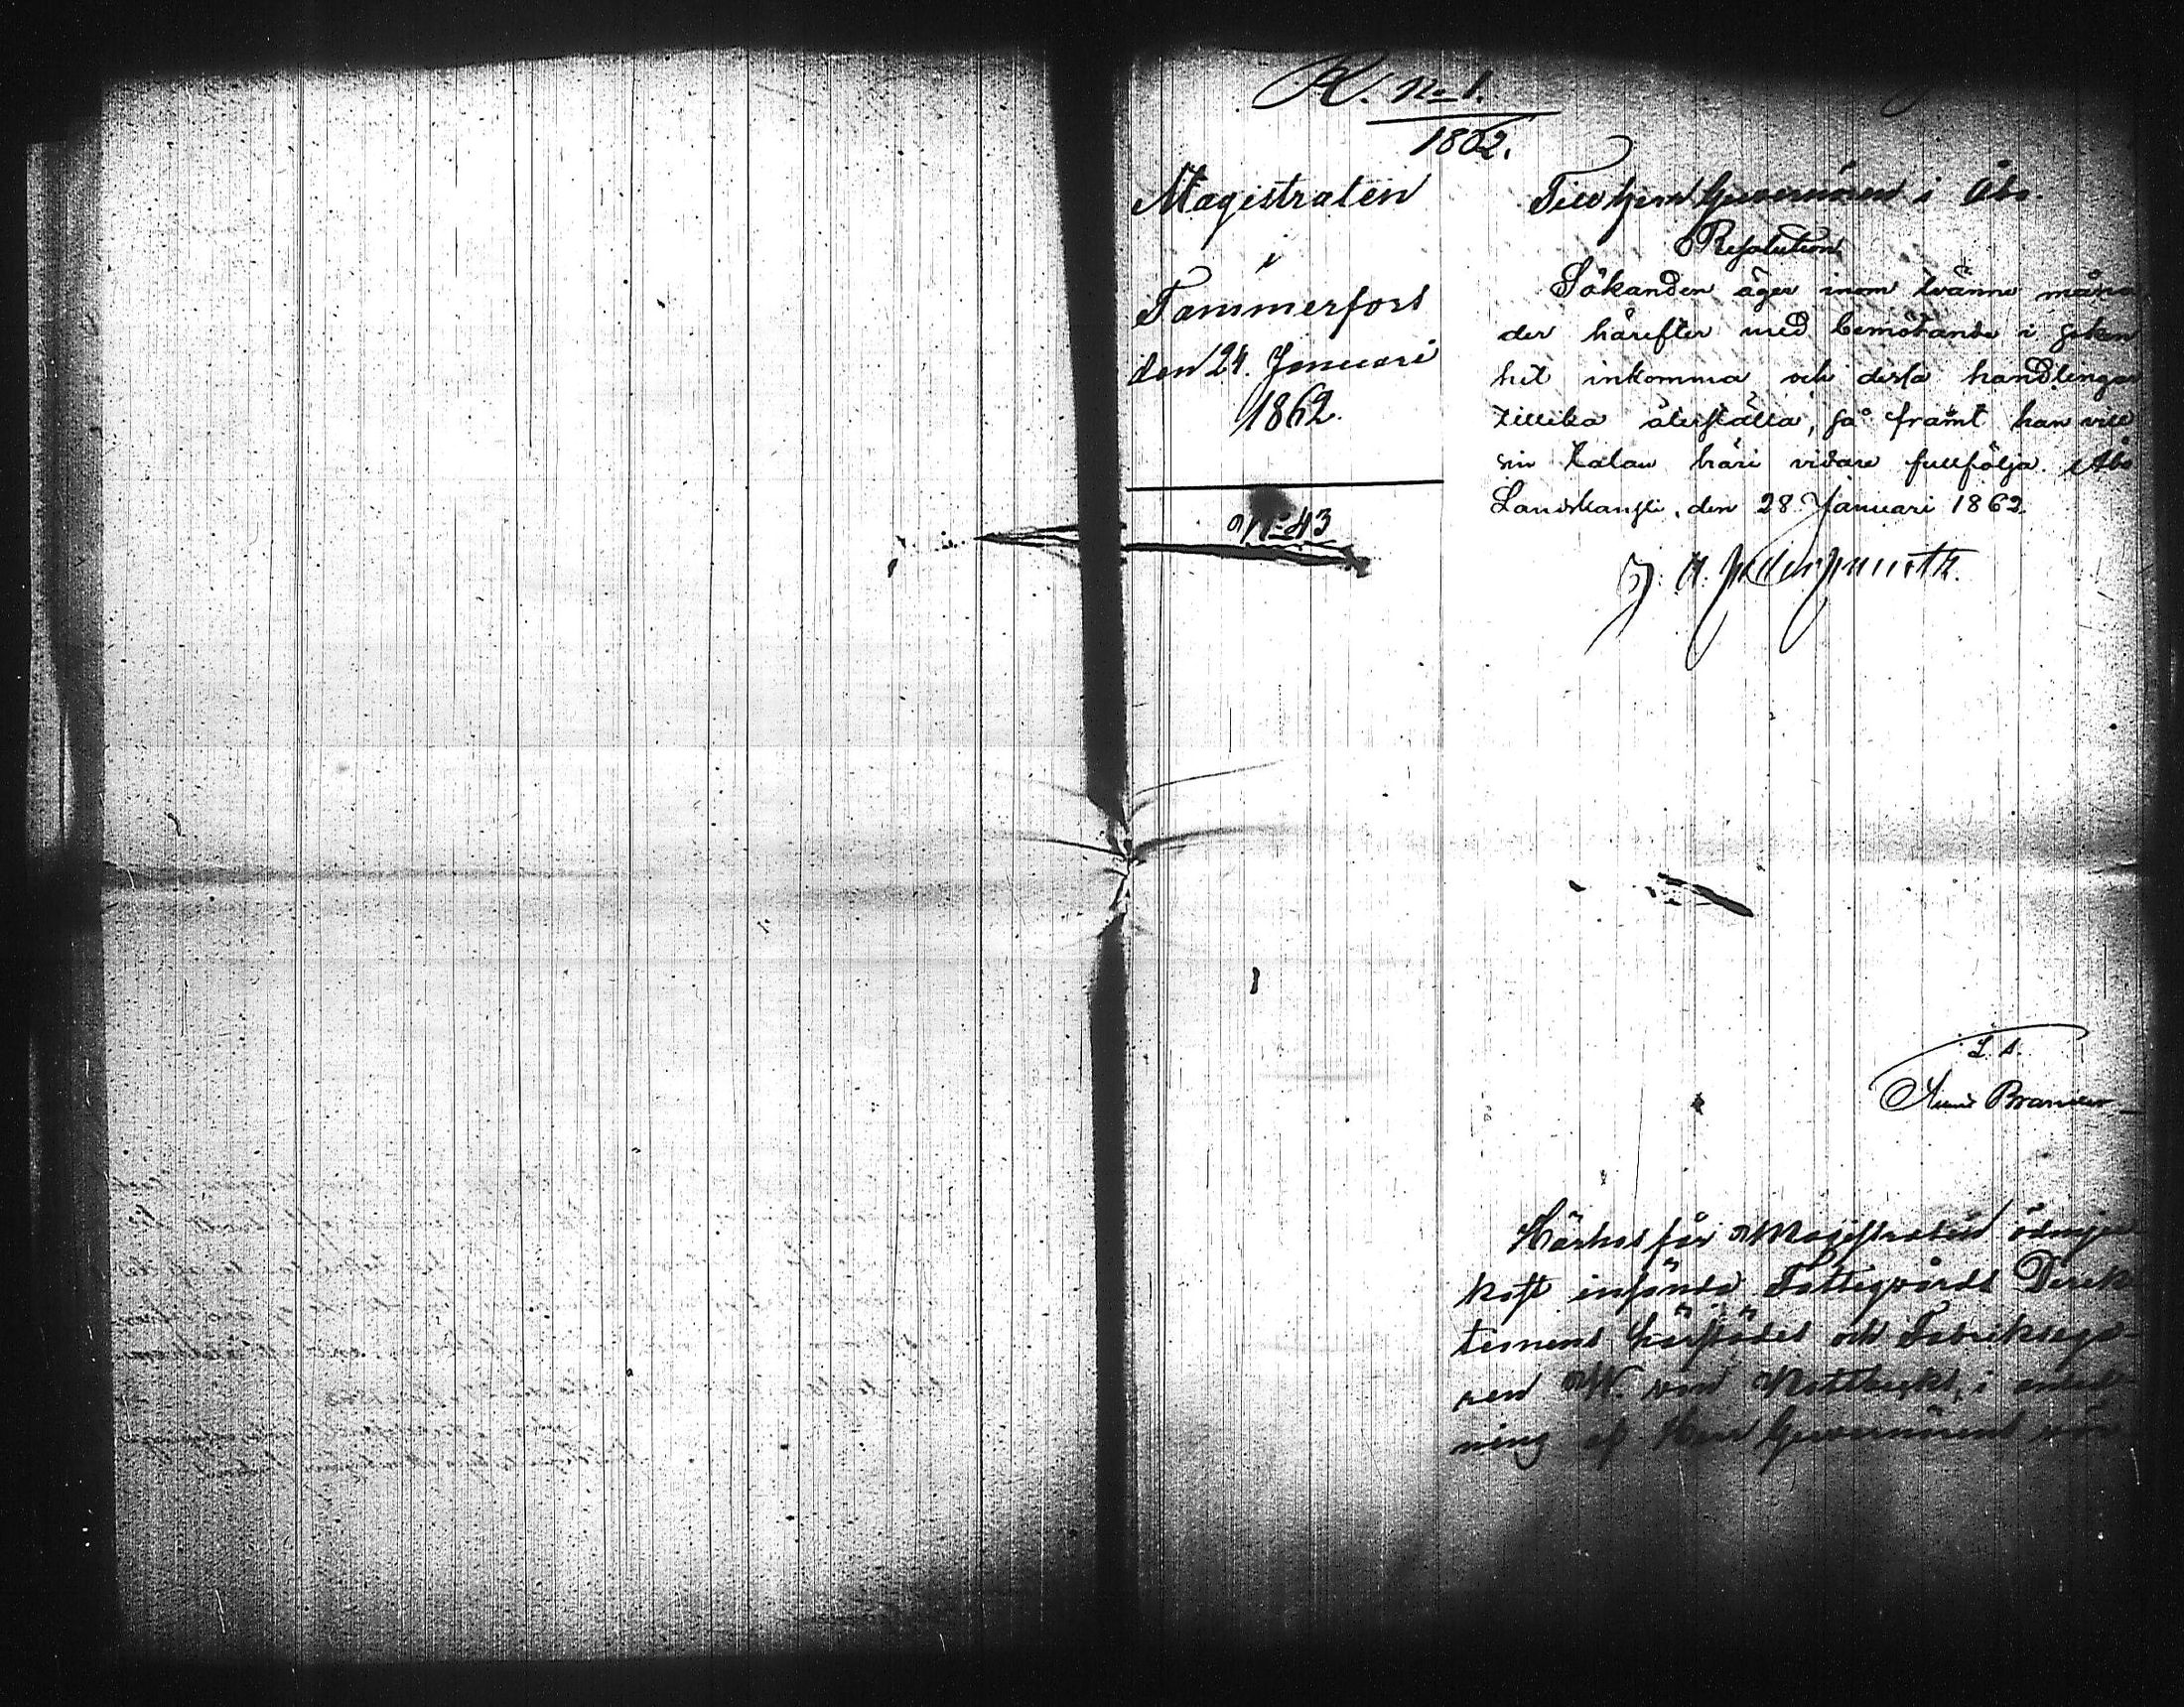 K. No 1.
1862.
Magistraten
i
Tammerfors
den 24. Januari
1862.
No 43
Till Herr Guvernören i Åbo.
Resolution
Sökanden äger inom tvänne måna
der härefter med bemötande i saken
hit inkomma och dessa handlingar
tillika återställa, så framt han vill
sin talan häri vidare fullfölja. Åbo
Landskansli, den 28 Januari 1862.
L. S.
Härhos får Magistraten ödmju
kast insända Fattigvårds Direk
tionens härstädes och Fabriksega-
ren W. von Nottbecks, i anled
ning af Herr Guvernörens